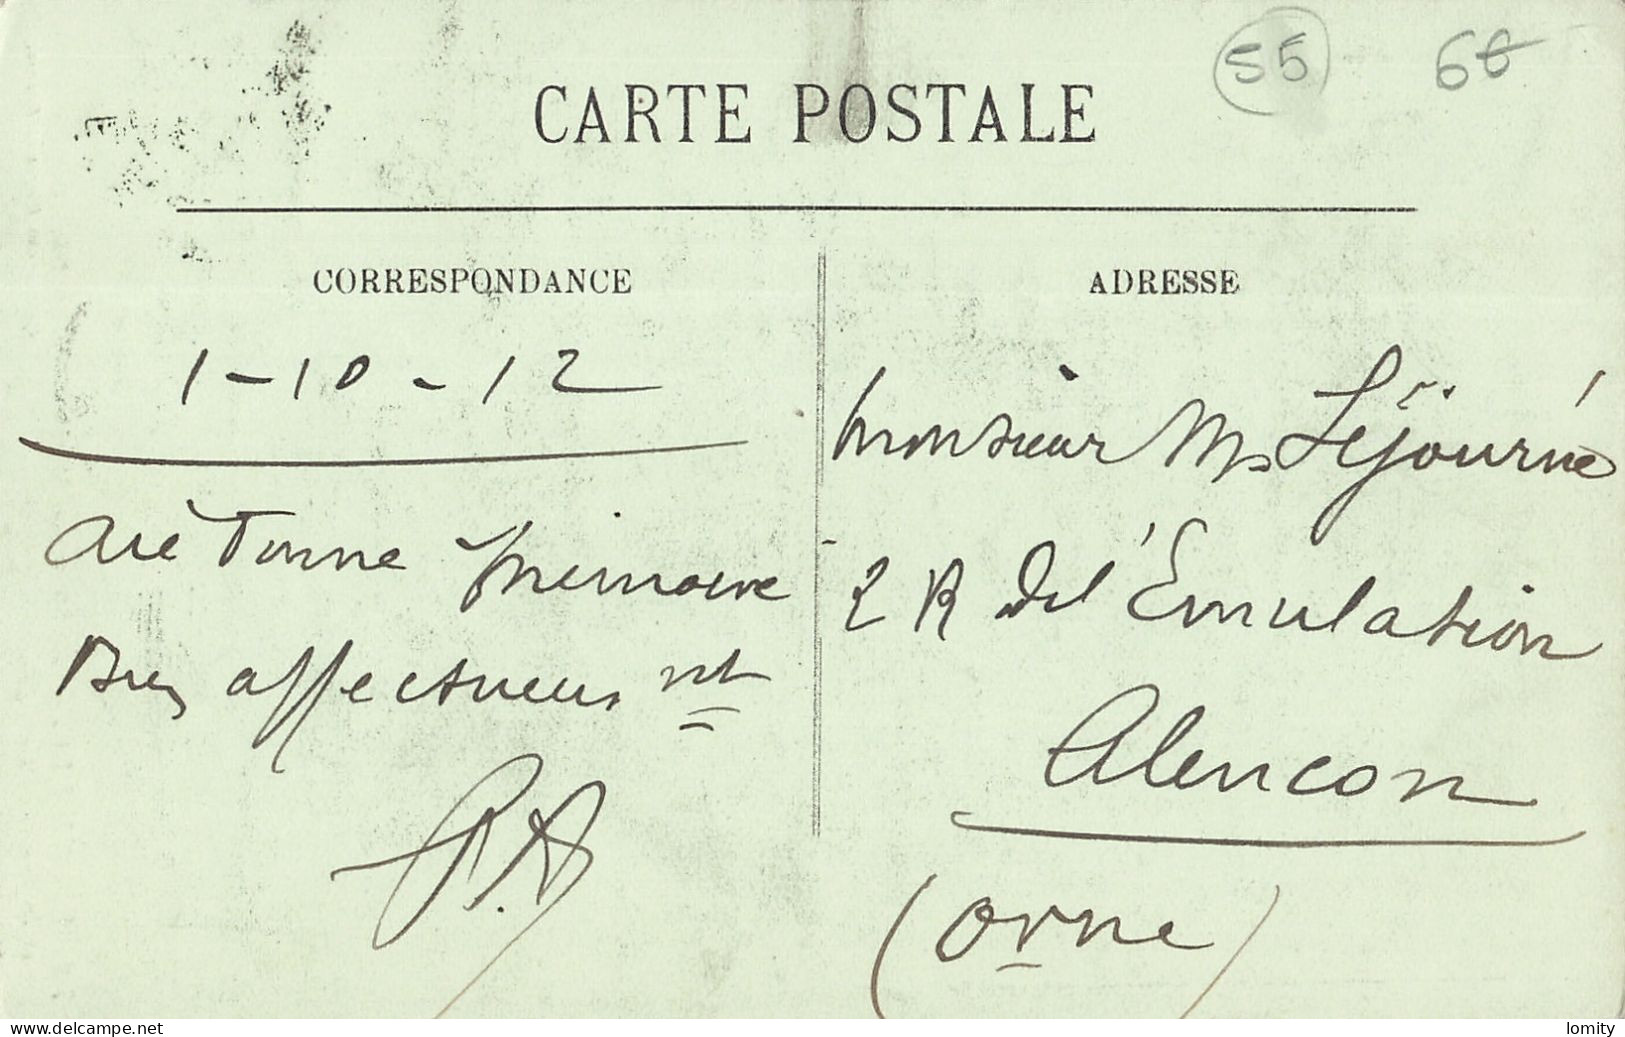 55
6€
CARTE POSTALE
CORRESPONDANCE
ADRESSE
1-10-12
Bonne mémoire
Bien affectueusemt
P.A
Monsieur M Léjourné
2 R de l'Émulation
Alencon
(Orne)
www.delcampe.net
lomity